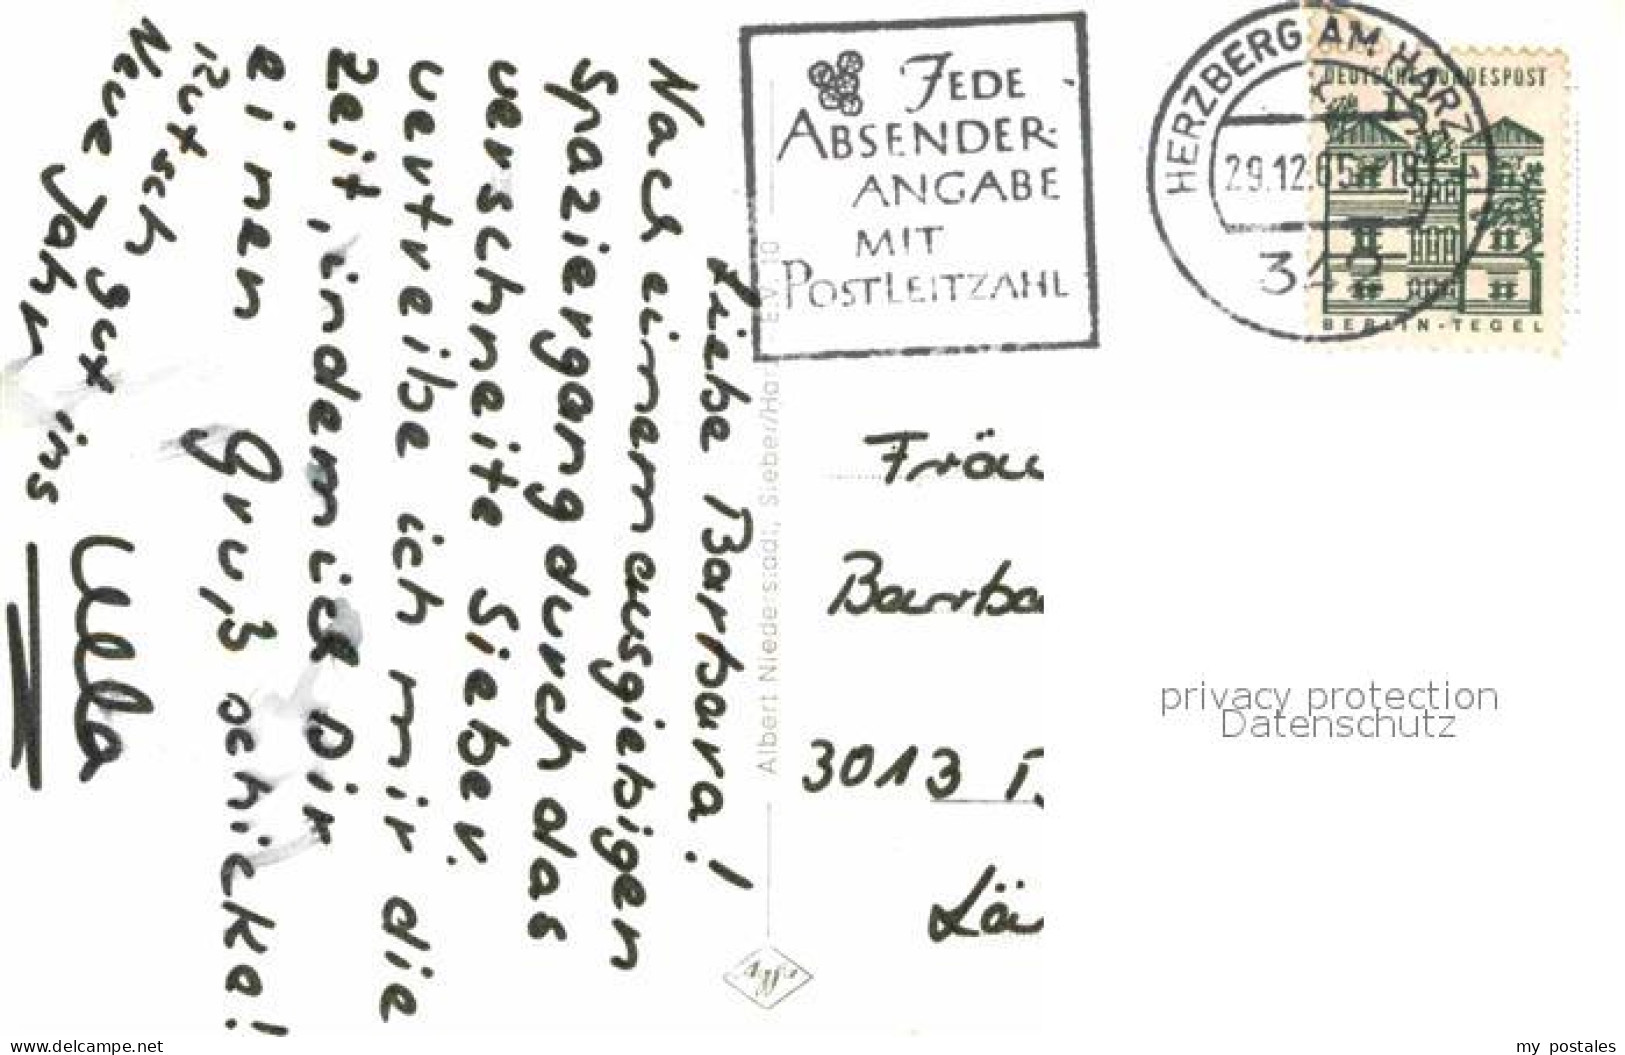 Liebe Barbara!
Nach einem ausgiebigen
Spaziergang durch das
verschneite Sieber.
vertreibe ich mir die
Zeit, indem ich Dir
einen Gruß schicke!
Rutsch gut ins
Neue Jahr
Ulla
Albert Niederstadt, Sieber/Harz
Agfa
JEDE
ABSENDER-
ANGABE
MIT
POSTLEITZAHL
HERZBERG AM HARZ 1
29.12.65-18
DEUTSCHE BUNDESPOST
15
BERLIN-TEGEL
Fräu
Barba
3013
Lä
privacy protection
Datenschutz
www.delcampe.net
my_postales